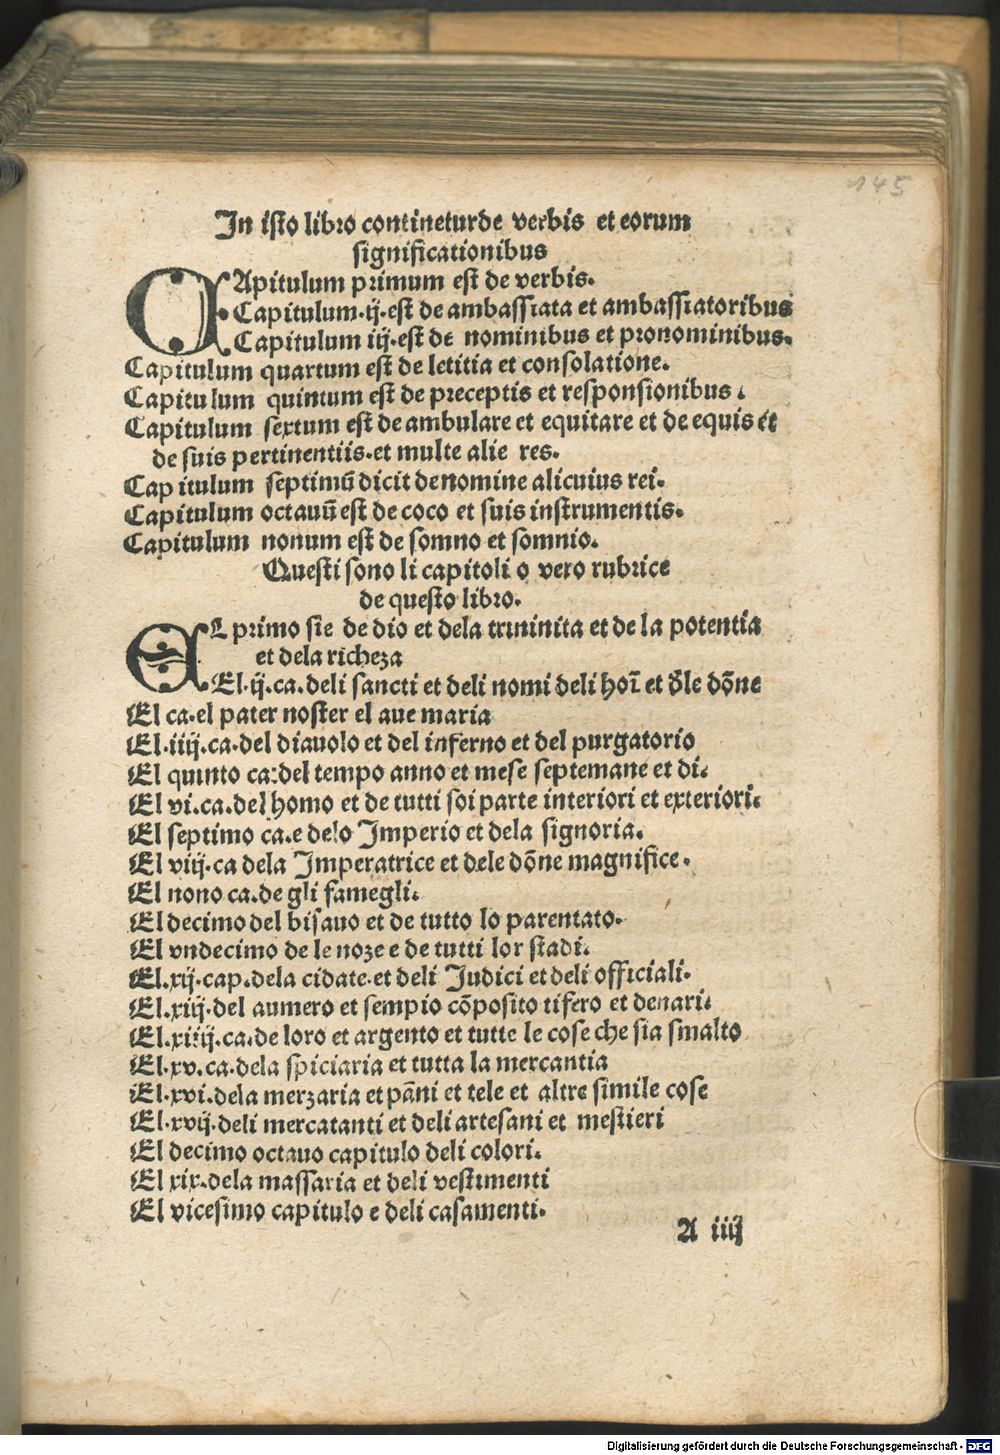 145
In isto libro contineturde verbis et eorum
significationibus
CApitulum primum est de verbis.
Capitulum.ij.est de ambassiata et ambassiatoribus
Capitulum iij.est de nominibus et pronominibus.
Capitulum quartum est de letitia et consolatione.
Capitulum quintum est de preceptis et responsionibus.
Capitulum sextum est de ambulare et equitare et de equis et
de suis pertinentiis.et multe alie res.
Capitulum septimũ dicit de nomine alicuius rei.
Capitulum octauũ est de coco et suis instrumentis.
Capitulum nonum est de somno et somnio.
Questi sono li capitoli o vero rubrice
de questo libro.
EL primo sie de dio et dela trininita et de la potentia
et dela richeza
El.ij.ca.deli sancti et deli nomi deli hoĩ et dłe dõne
El ca.el pater noster el aue maria
El.iiij.ca.del diauolo et del inferno et del purgatorio
El quinto ca:del tempo anno et mese septemane et di.
El vi.ca.del homo et de tutti soi parte interiori et exteriori.
El septimo ca.e delo Imperio et dela signoria.
El viij.ca dela Imperatrice et dele dõne magnifice.
El nono ca.de gli famegli.
El decimo del bisauo et de tutto lo parentato.
El vndecimo de le noze e de tutti lor stadi.
El.xij.cap.dela cidate.et deli Judici et deli officiali.
El.xiij.del aumero et sempio cõposito tifero et denari.
El.xiiij.ca.de loro et argento et tutte le cose che sia smalto
El.xv.ca.dela spiciaria et tutta la mercantia
El.xvi.dela merzaria et pãni et tele et altre simile cose
El.xvij.deli mercatanti et deli artesani et mestieri
El decimo octauo capitulo deli colori.
El xix.dela massaria et deli vestimenti
El vicesimo capitulo e deli casamenti.
A iiij
Digitalisierung gefördert durch die Deutsche Forschungsgemeinschaft - DFG